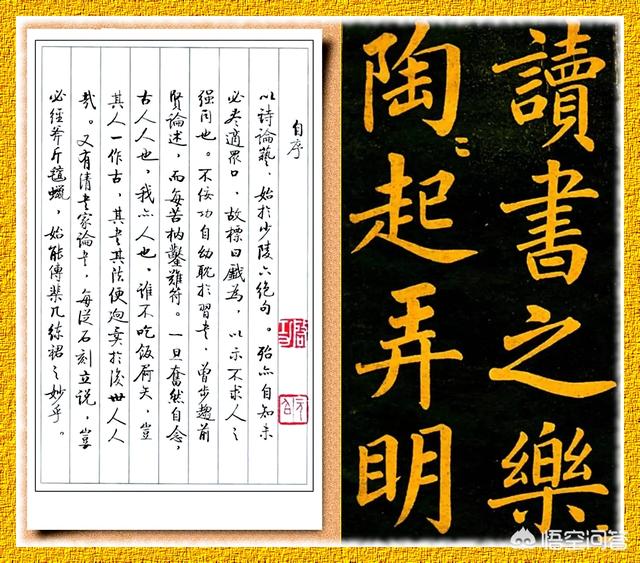 自序
以詩論藝，始於少陵六絕句。殆亦自知未
必尽適眾口，故標曰戲為，以示不求人之
强同也。不佞功自幼耽於習書，曾步趨前
賢論述，而每苦枘鑿難符。一旦奮然自念，
古人人也，我亦人也，誰不吃飯屙矢，豈
其人一作古，其書其法便迥異於後世人人
哉。又有清書家論書，每從石刻立說，豈
必經斧斤氈蠟，始能傳棐几練裙之妙乎。
讀書之樂
陶〻起弄明
悟空问答